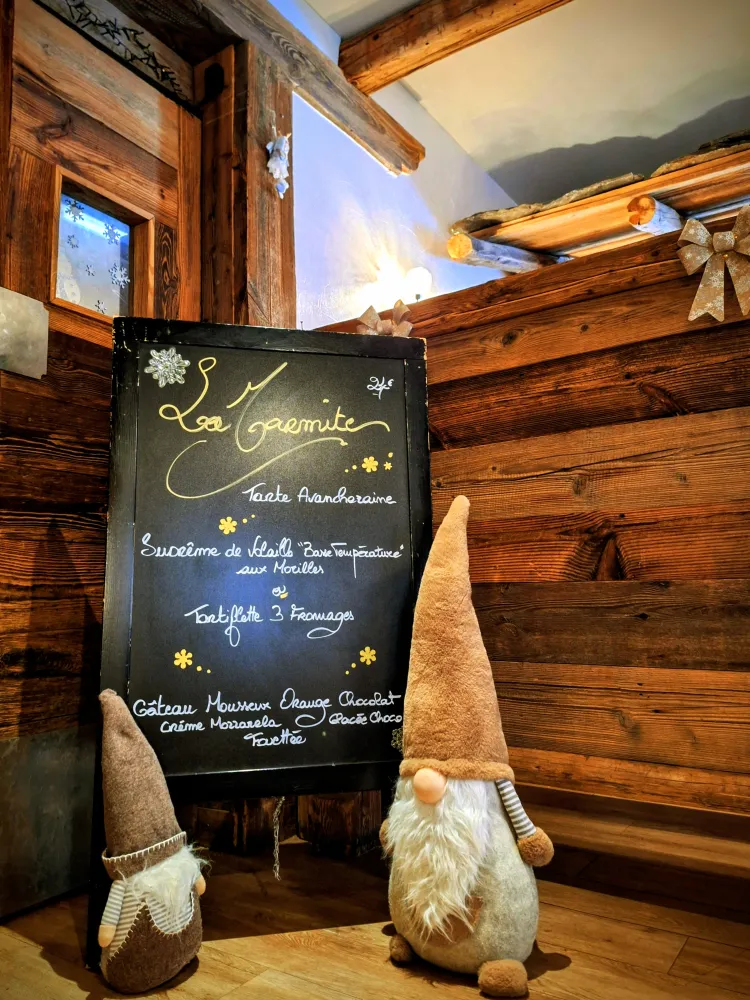 24€
La Marmite
Tarte Avancheraine
Suprême de Volaille "Basse Température"
aux Morilles
ou
Tartiflette 3 Fromages
Gâteau Mousseux Orange Chocolat
Crème Mozzarela Glacée Choco
Fouettée